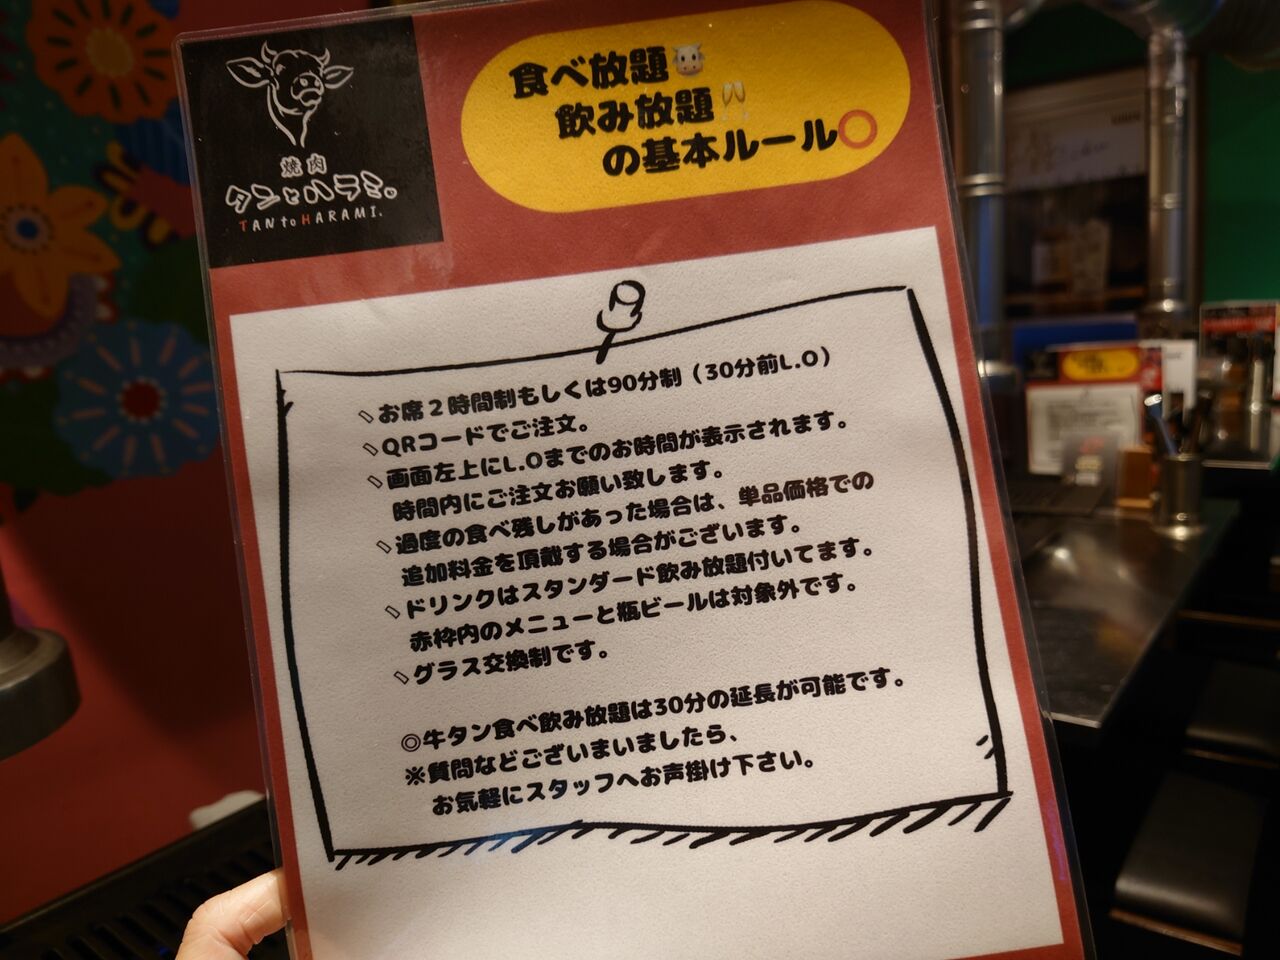 焼肉
タンとハラミ。
TAN to HARAMI.
食べ放題🐮
飲み放題🥂
の基本ルール⭕
お席2時間制もしくは90分制（30分前L.O）
QRコードでご注文。
画面左上にL.Oまでのお時間が表示されます。
時間内にご注文お願い致します。
過度の食べ残しがあった場合は、単品価格での
追加料金を頂戴する場合がございます。
ドリンクはスタンダード飲み放題付いてます。
赤枠内のメニューと瓶ビールは対象外です。
グラス交換制です。
◎牛タン食べ飲み放題は30分の延長が可能です。
※質問などございまいましたら、
お気軽にスタッフへお声掛け下さい。